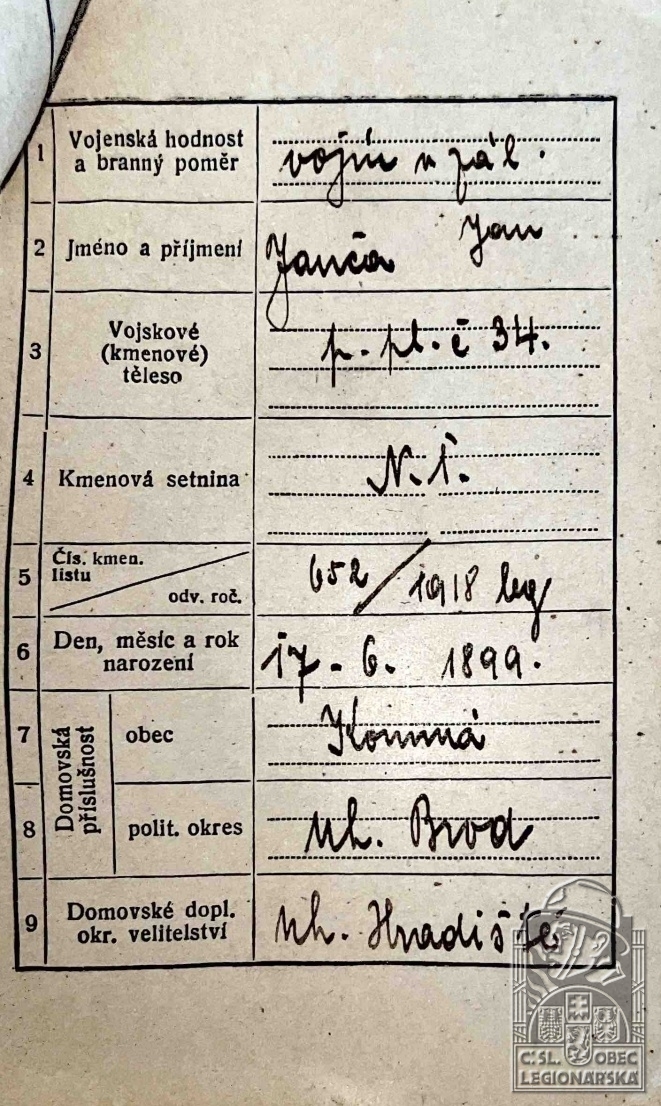 1 Vojenská hodnost
a branný poměr
vojín v zál.
2 Jméno a příjmení
Janča Jan
3 Vojskové
(kmenové)
těleso
p. pl. č 34.
4 Kmenová setnina
N. t.
5 Čís. kmen.
listu
odv. roč.
652/1918 leg
6 Den, měsíc a rok
narození
17. 6. 1899.
Domovská
příslušnost
7 obec
Komná
8 polit. okres
Uh. Brod
9 Domovské dopl.
okr. velitelství
Uh. Hradiště
Č. SL. OBEC
LEGIONÁŘSKÁ